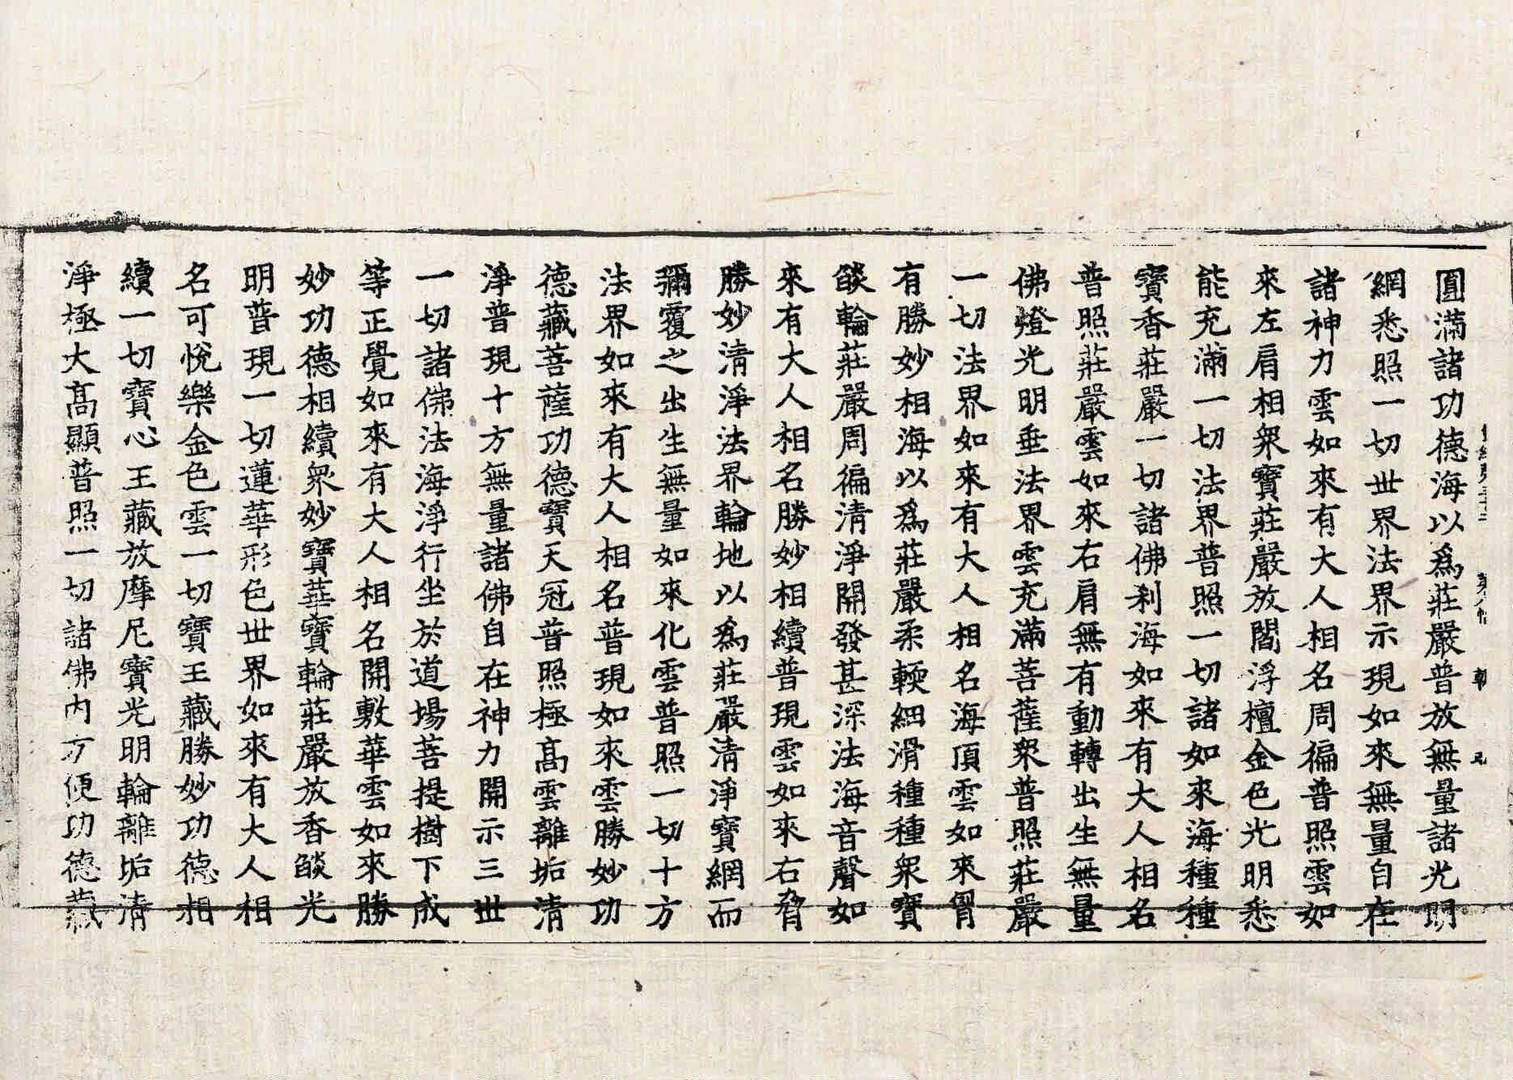 圓滿諸功德海以爲莊嚴普放無量諸光明
網悉照一切世界法界示現如來無量自在
諸神力雲如來有大人相名周徧普照雲如
來左肩相衆寶莊嚴放閻浮檀金色光明悉
能充滿一切法界普照一切諸如來海種種
寶香莊嚴一切諸佛刹海如來有大人相名
普照莊嚴雲如來右肩無有動轉出生無量
佛燈光明垂法界雲充滿菩薩衆普照莊嚴
一切法界如來有大人相名海頂雲如來胷
有勝妙相海以爲莊嚴柔輭細滑種種衆寶
燄輪莊嚴周徧清淨開發甚深法海音聲如
來有大人相名勝妙相續普現雲如來右脅
勝妙清淨法界輪地以爲莊嚴清淨寶網而
彌覆之出生無量如來化雲普照一切十方
法界如來有大人相名普現如來雲勝妙功
德藏菩薩功德寶天冠普照極高雲離垢清
淨普現十方無量諸佛自在神力開示三世
一切諸佛法海淨行坐於道場菩提樹下成
等正覺如來有大人相名開敷華雲如來勝
妙功德相續衆妙寶華寶輪莊嚴放香燄光
明普現一切蓮華形色世界如來有大人相
名可悅樂金色雲一切寶王藏勝妙功德相
續一切寶心王藏放摩尼寶光明輪離垢清
淨極大高顯普照一切諸佛內方便功德藏